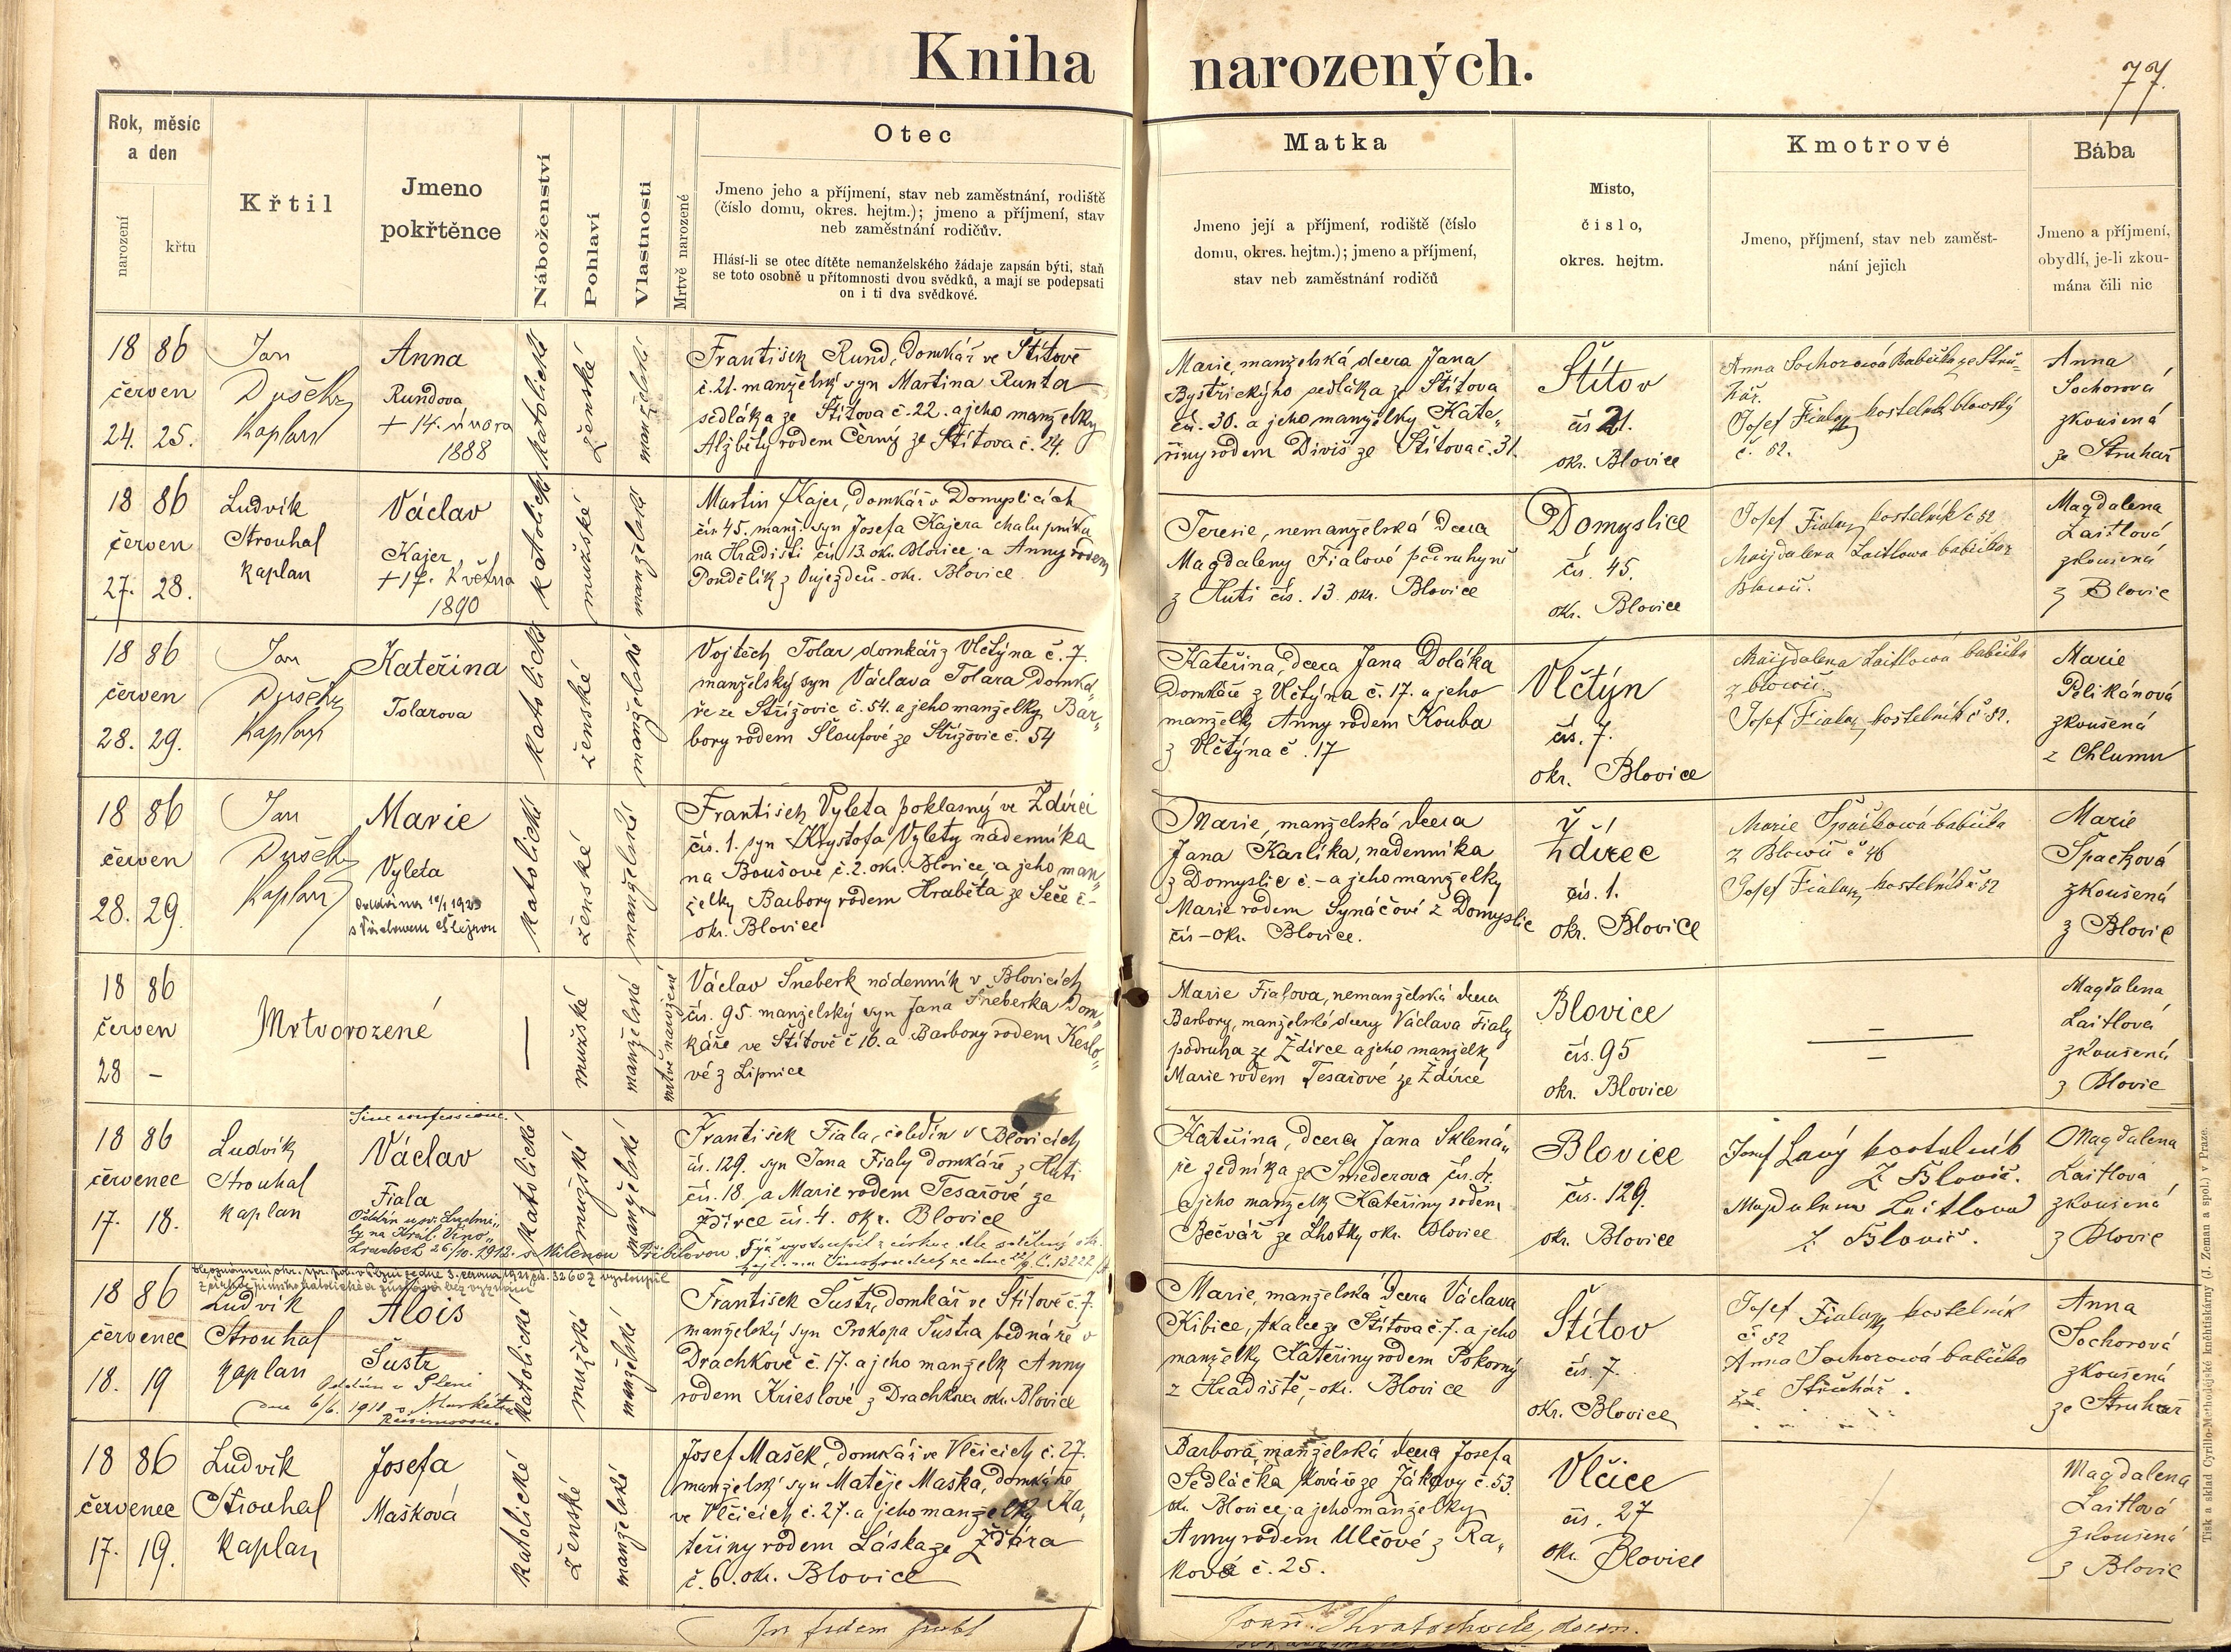 Kniha narozených.
77.
Rok, měsíc
a den
narození
křtu
Křtil
Jmeno
pokřtěnce
Náboženství
Pohlaví
Vlastnosti
Mrtvě narozené
Otec
Jmeno jeho a příjmení, stav neb zaměstnání, rodiště
(číslo domu, okres. hejtm.); jmeno a příjmení, stav
neb zaměstnání rodičův.
Hlásí-li se otec dítěte nemanželského žádaje zapsán býti, staň
se toto osobně u přítomnosti dvou svědků, a mají se podepsati
on i ti dva svědkové.
Matka
Jmeno její a příjmení, rodiště (číslo
domu, okres. hejtm.); jmeno a příjmení,
stav neb zaměstnání rodičů
Místo,
číslo,
okres. hejtm.
Kmotrové
Jmeno, příjmení, stav neb zaměst-
nání jejich
Bába
Jmeno a příjmení,
obydlí, je-li zkou-
mána čili nic
18 86
červen
24. 25.
Jan
Dušek
Kaplan
Anna
Rundova
+ 14. února
1888
katolické
ženské
manželské
František Rund, Domkář ve Štítově
č. 21. manželský syn Martina Runta
sedláka ze Štítova č. 22. a jeho manželky
Alžběty rodem Černý ze Štítova č. 24.
Marie, manželská dcera Jana
Bystřického sedláka ze Štítova
čís. 30. a jeho manželky Kate„
řiny rodem Diviš ze Štítova č. 31.
Štítov
čís 21.
okr. Blovice
Anna Sochorová Babička ze Stru-
hař.
Josef Fiala kostelník blovský
č. 52.
Anna
Sochorová
zkoušená
ze Struhař
18 86
červen
27. 28.
Ludvík
Strouhal
kaplan
Václav
Kajer
+ 17. května
1890
katolické
mužské
manželské
Martin Kajer, Domkář v Domyslicích
čís. 45. manž. syn Josefa Kajera chalupníka
na Hradišti čís. 13. okr. Blovice a Anny rodem
Pondělík z Oujezdeů - okr. Blovice
Teresie, nemanželská dcera
Magdaleny Fialové podruhyně
z Huti čís. 13. okr. Blovice
Domyslice
čís. 45.
okr. Blovice
Josef Fiala kostelník č 52
Majdalena Laitlowa babička
z Blowic.
Magdalena
Laitlová
zkoušená
z Blovic
18 86
červen
28. 29.
Jan
Dušek
Kaplan
Kateřina
Tolarova
katolické
ženské
manželské
Vojtěch Tolar, domkář z Vlčtýna č. 7.
manželský syn Václava Tolara Domká„
ře ze Střížovic č. 54. a jeho manželky Bar„
bory rodem Sloufové ze Střížovic č. 54
Kateřina, dcera Jana Doláka
Domkáře z Vlčtýna č. 17. a jeho
manželky Anny rodem Kouba
z Vlčtýna č. 17
Vlčtýn
čís. 7.
okr. Blovice
Majdalena Laitlowá babička
z blowic
Josef Fiala kostelník č 52.
Marie
Pelikánová
zkoušená
z Chlumu
18 86
červen
28. 29.
Jan
Dušek
Kaplan
Marie
Vyleta
katolické
ženské
manželské
František Vyleta poklasný ve Ždírci
čís. 1. syn Kryštofa Vylety nádenníka
na Boušově č. 2. okr. Blovice, a jeho man„
želky Barbory rodem Hraběta ze Seče č -
okr. Blovice
Marie, manželská dcera
Jana Karlíka, nádenníka
z Domyslic č. - a jeho manželky
Marie rodem Synáčové z Domyslic
čís - okr. Blovice.
Ždírec
čís. 1.
okr. Blovice
Marie Špačkowá babička
z Blowic č 46
Josef Fiala kostelník č 52
Marie
Špačková
zkoušená
z Blovic
18 86
červen
28 -
Mrtvorozené
mužské
manželské
mrtvě narozené
Václav Šneberk nádenník v Blovicích
čís. 95. manželský syn Jana Šneberka Dom„
káře ve Štítově č 16. a Barbory rodem Keslo„
vé z Lipnice
Marie Fialova, nemanželská dcera
Barbory, manželské dcery Václava Fialy
podruha ze Ždírce a jeho manželky
Marie rodem Tesařové ze Ždírce
Blovice
čís. 95
okr. Blovice
Magdalena
Laitlová
zkoušená
z Blovic
18 86
červenec
17. 18.
Ludvík
Strouhal
kaplan
Sine confessione.
Václav
Fiala
katolické
mužské
manželské
František Fiala, čeledín v Blovicích
čís. 129. syn Jana Fialy domkáře z Huti
čís. 18. a Marie rodem Tesařové ze
Ždírce čís. 4. okr. Blovice
Kateřina, dcera Jana Sklená„
ře zedníka ze Smederova čís. 4.
a jeho manželky Kateřiny rodem
Bečvář ze Lhotky okr. Blovice
Blovice
čís. 129.
okr. Blovice
Josef Lavý kostelník
Z Blovic.
Magdalena Laitlová
z Blovic.
Magdalena
Laitlová
zkoušená
z Blovic
18 86
červenec
18. 19
Ludvík
Strouhal
kaplan
Alois
Šustr
katolické
mužské
manželské
František Šustr, domkář ve Štítově č. 7.
manželský syn Prokopa Šustra bednáře v
Drachkově č. 17. a jeho manželky Anny
rodem Krieslové z Drachkova okr. Blovice
Marie, manželská Dcera Václava
Kibice, tkalce ze Štítova č. 7. a jeho
manželky Kateřiny rodem Pokorný
z Hradiště, - okr. Blovice
Štítov
čís. 7.
okr. Blovice
Josef Fiala kostelník
č 52
Anna Sochorowá babička
ze Struhař.
Anna
Sochorová
zkoušená
ze Struhař
18 86
červenec
17. 19.
Ludvík
Strouhal
kaplan
Josefa
Mašková
katolické
ženské
manželské
Josef Mašek, domkář ve Vlčicích č. 27.
manželský syn Matěje Maška, domkáře
ve Vlčicích č. 27. a jeho manželky Ka„
teřiny rodem Láska ze Ždára
č. 6. okr. Blovice
Barbora, manželská dcera Josefa
Sedláčka kováře ze Žákavy č. 53.
okr. Blovice, a jeho manželky
Anny rodem Ulčové z Ra„
kové č. 25.
Vlčice
čís. 27
okr. Blovice
Magdalena
Laitlová
zkoušená
z Blovic
Tisk a sklad Cyrillo-Methodějské knihtiskárny (J. Zeman a spol.) v Praze.